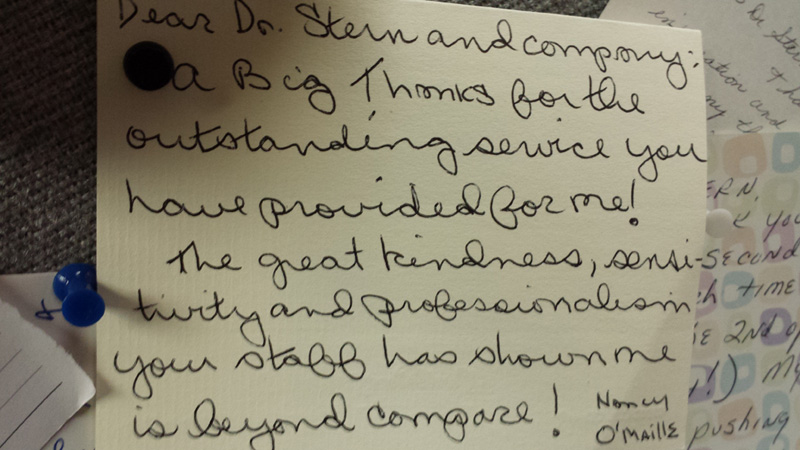 Dear Dr. Stern and company:
a Big Thanks for the
outstanding service you
have provided for me!
The great kindness, sensi-
tivity and professionalism
your staff has shown me
is beyond compare!
Nancy
O'Maille
in
Dr. Ster
ation and
my th
ERN.
you
SECOND
h time
2nd op
!) My
pushing